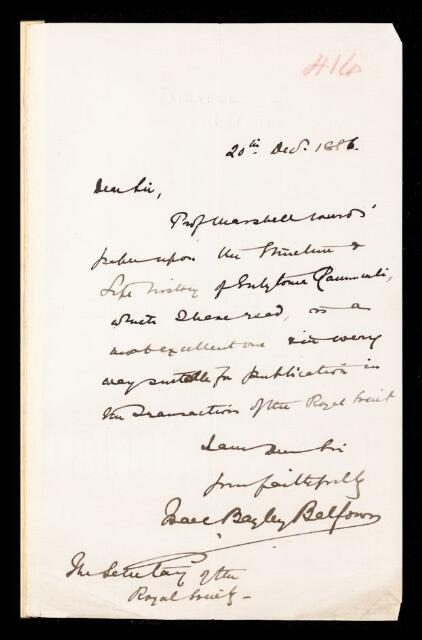 416
20th Decr. 1886.
Dear Sir,
Prof Marshall Ward's
paper upon the Structure &
Life history of Entyloma Ranunculi,
which I have read, is a
most excellent one & in every
way suitable for publication in
the Transactions of the Royal Society
I am Dear Sir
yours faithfully
Isaac Bayley Balfour
The Secretary of the
Royal Society